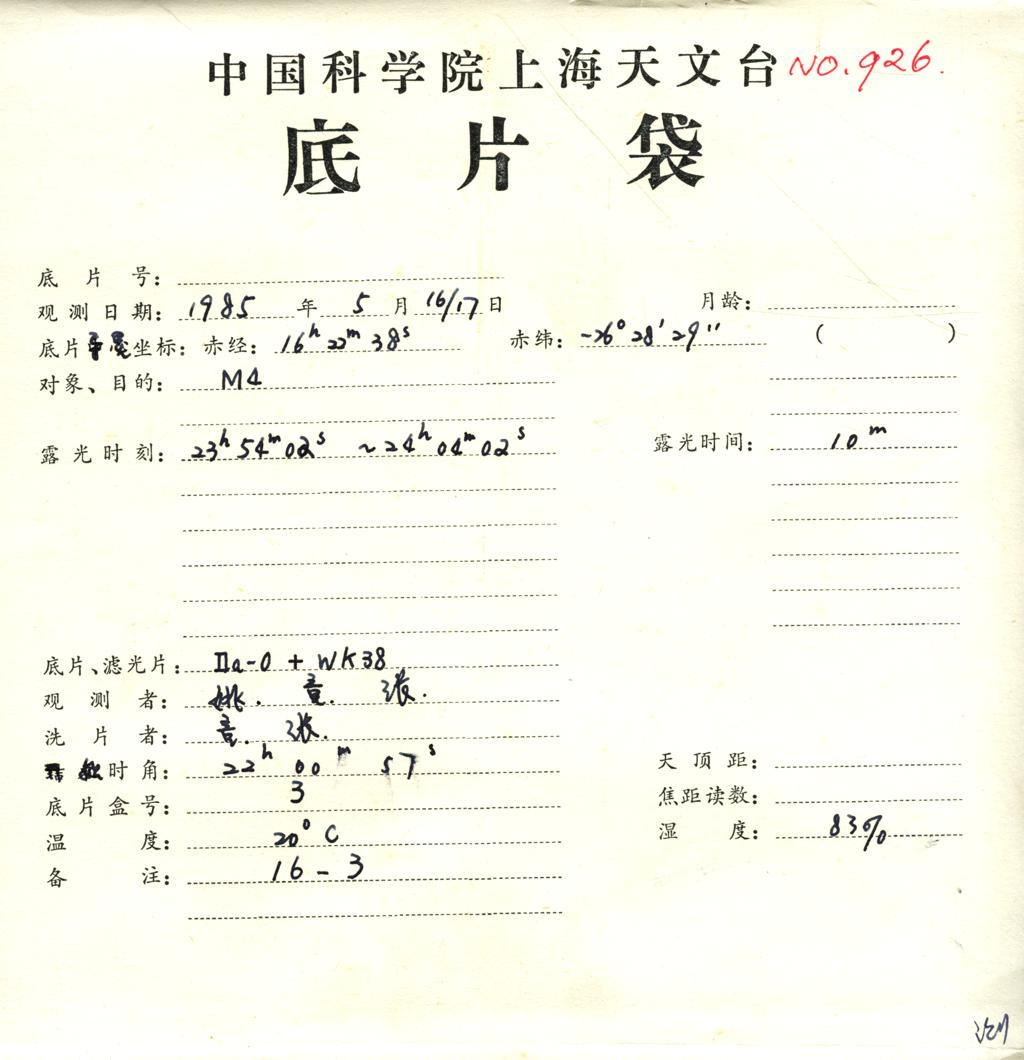 中国科学院上海天文台 NO.926.
底片袋
底片号:
观测日期: 1985 年 5 月 16/17 日 月龄:
底片 坐标: 赤经: 16h 22m 38s 赤纬: -26° 28' 29" ( )
对象、目的: M4
露光时刻: 23h 54m 02s ~ 24h 04m 02s 露光时间: 10m
底片、滤光片: IIa-O + WK38
观测者: 姚. 童. 张.
洗片者: 童. 张.
时角: 22h 00m 57s 天顶距:
底片盒号: 3 焦距读数:
温度: 20°C 湿度: 83%
备注: 16-3